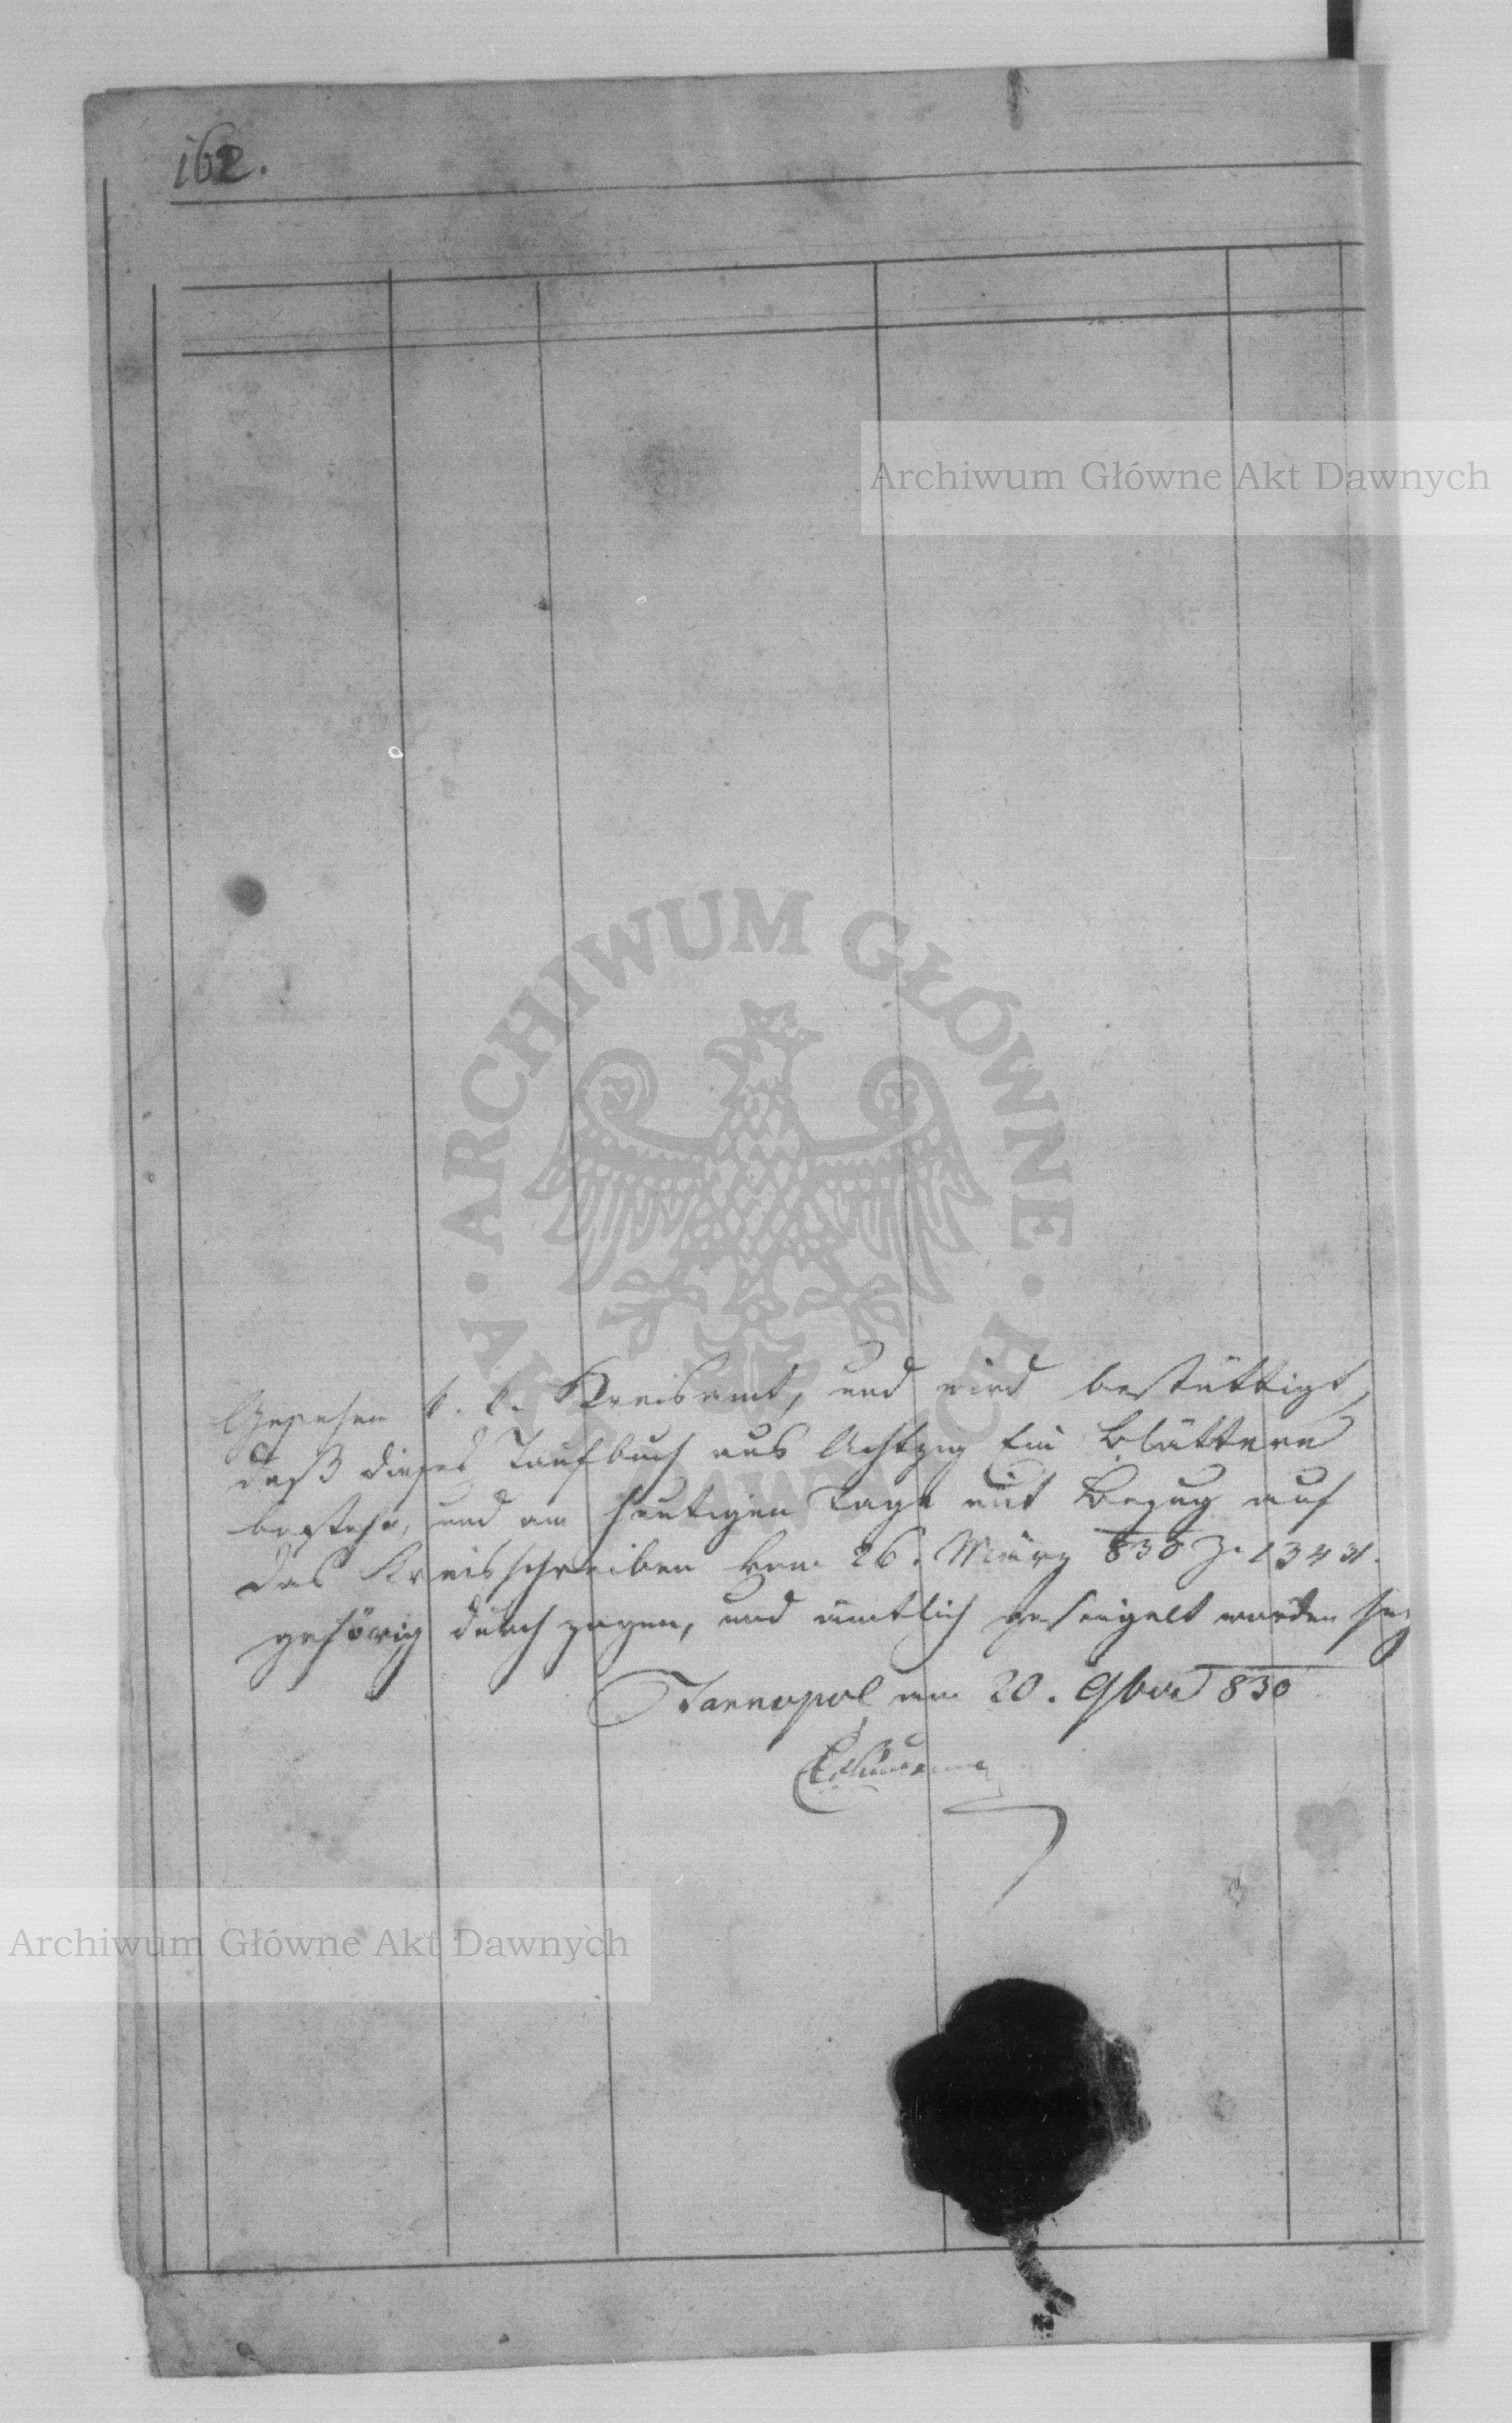 162.
Archiwum Główne Akt Dawnych
ARCHIWUM GŁÓWNE AKT DAWNYCH
Gesehen k. k. Kreisamt, und wird bestättigt,
daß dieses Taufbuch aus Achtzig Ein Blättern
bestehe, und am heutigen Tage mit Bezug auf
das Kreisschreiben vom 26. März 830 Z. 13431.
gehörig durchzogen, und ämtlich gesiegelt worden sey
Tarnopol am 20. 9ber 830
Archiwum Główne Akt Dawnych